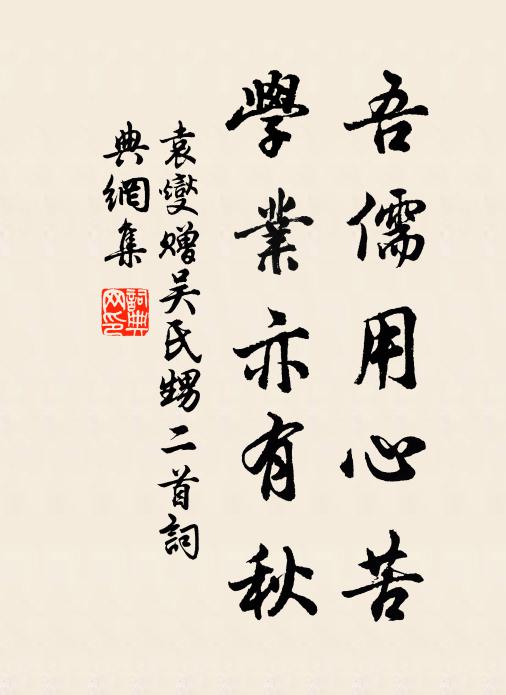 吾儒用心苦
學業亦有秋
袁燮贈吴氏甥二首詞
典網集
詞典
网印